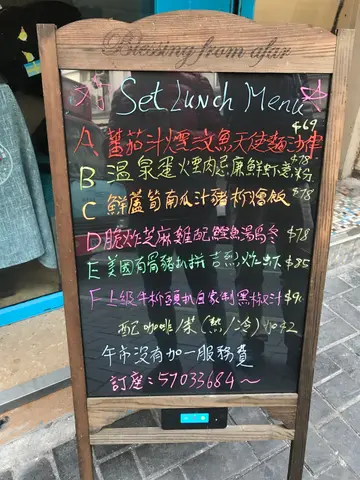 Blessing from afar
Set Lunch Menu
$69
A 蕃茄汁煙三文魚天使麵沙律
B 溫泉蛋煙肉忌廉鮮蝦意粉 $78
C 鮮蘆筍南瓜汁豬柳燴飯 $78
D 脆炸芝麻雞配鰹魚湯烏冬 $78
E 美國有骨豬扒拼吉烈炸蝦 $85
F 上級牛柳頭扒自家制黑椒汁
配咖啡/茶(熱/冷)
午市沒有加一服務費
訂座：57033684～